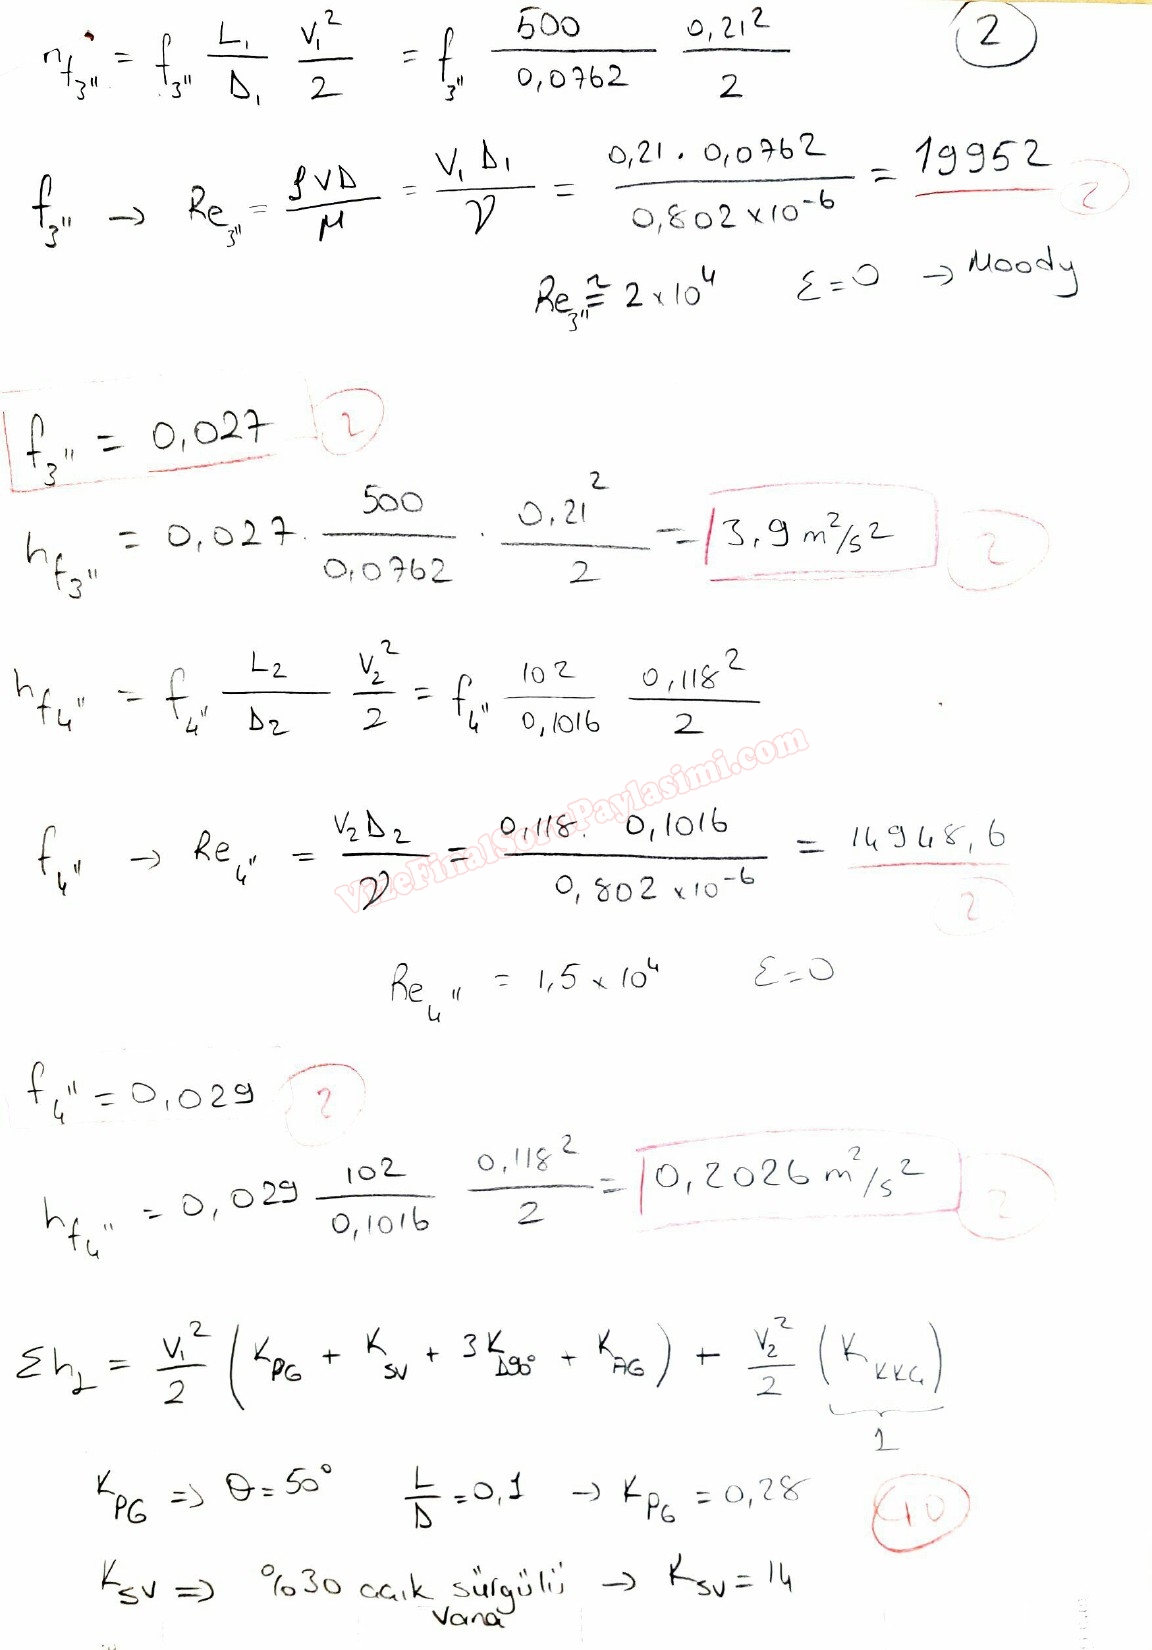 h_f3'' = f_3'' L₁/D₁ V₁²/2 = f_3'' 500/0,0762 0,21²/2 2
f_3'' → Re_3'' = ρVD/μ = V₁D₁/ν = 0,21 . 0,0762 / 0,802×10⁻⁶ = 19952 2
Re_3'' ≅ 2×10⁴ ε=0 → Moody
f_3'' = 0,027 2
h_f3'' = 0,027 . 500/0,0762 . 0,21²/2 = 3,9 m²/s² 2
h_f4'' = f_4'' L₂/D₂ V₂²/2 = f_4'' 102/0,1016 0,118²/2
VizeFinalSoruPaylasimi.com
f_4'' → Re_4'' = V₂D₂/ν = 0,118 . 0,1016 / 0,802×10⁻⁶ = 14948,6 2
Re_4'' = 1,5×10⁴ ε=0
f_4'' = 0,029 2
h_f4'' = 0,029 102/0,1016 0,118²/2 = 0,2026 m²/s² 2
Σh_L = V₁²/2 (K_PG + K_SV + 3K_D90° + K_AG) + V₂²/2 (K_KKG)
1
K_PG => θ=50° L/D=0,1 → K_PG = 0,28 10
K_SV => %30 açık sürgülü → K_SV = 14
vana